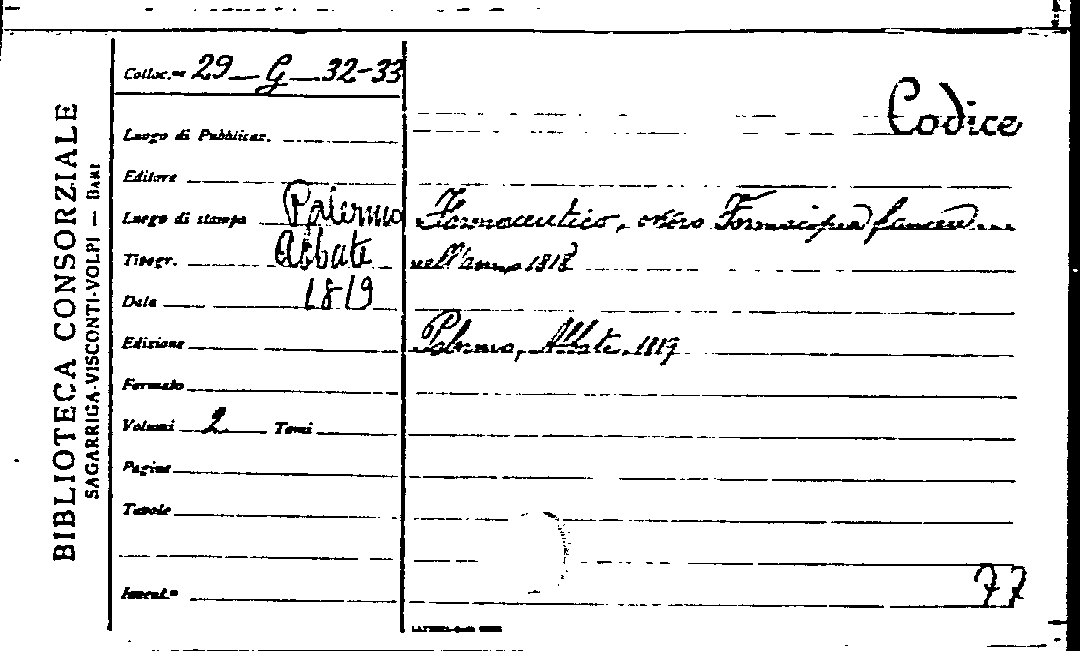 BIBLIOTECA CONSORZIALE
SAGARRIGA-VISCONTI-VOLPI — BARI
Colloc.ne 29 — G — 32-33
Luogo di Pubblicaz.
Editore
Luogo di stampa Palermo
Tipogr. Abbate
Data 1819
Edizione
Formato
Volumi 2 Tomi
Pagine
Tavole
Invent.º
Codice
Farmaceutico, ossia Farmacopea francese ...
nell'anno 1818
Palermo, Abbate, 1819
77